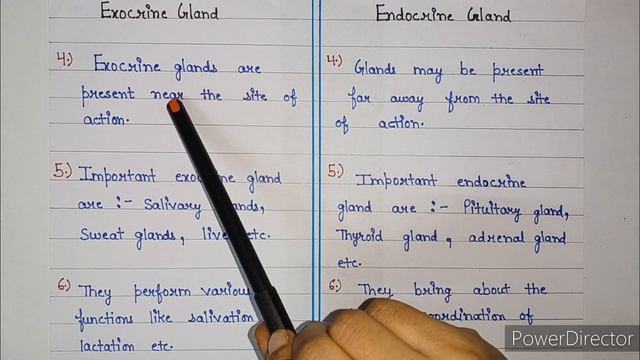 Exocrine Gland
4.) Exocrine glands are
present near the site of
action.
5.) Important gland
are :- Salivary
Sweat glands, etc.
6.) They perform various
functions like salivation
lactation etc.
Endocrine Gland
4.) Glands may be present
far away from the site
of action.
5.) Important endocrine
gland are :- Pituitary gland,
Thyroid gland, adrenal gland
etc.
6.) They bring about the
of
PowerDirector